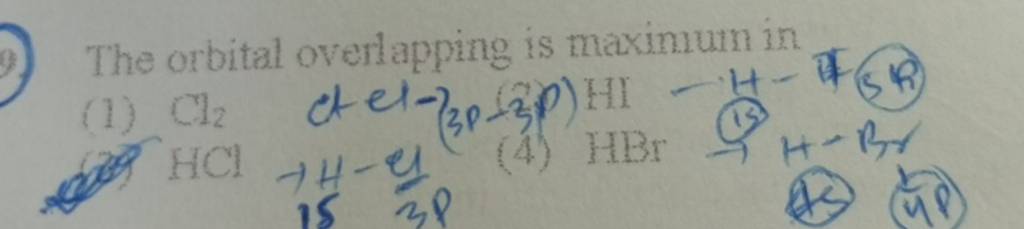 9
The orbital overlapping is maximum in
(1) Cl₂ Cl Cl → (3P-3P) (2) HI → H - I 5P
1S
HCl → H - Cl (4) HBr → H - Br
1S 3P 4P